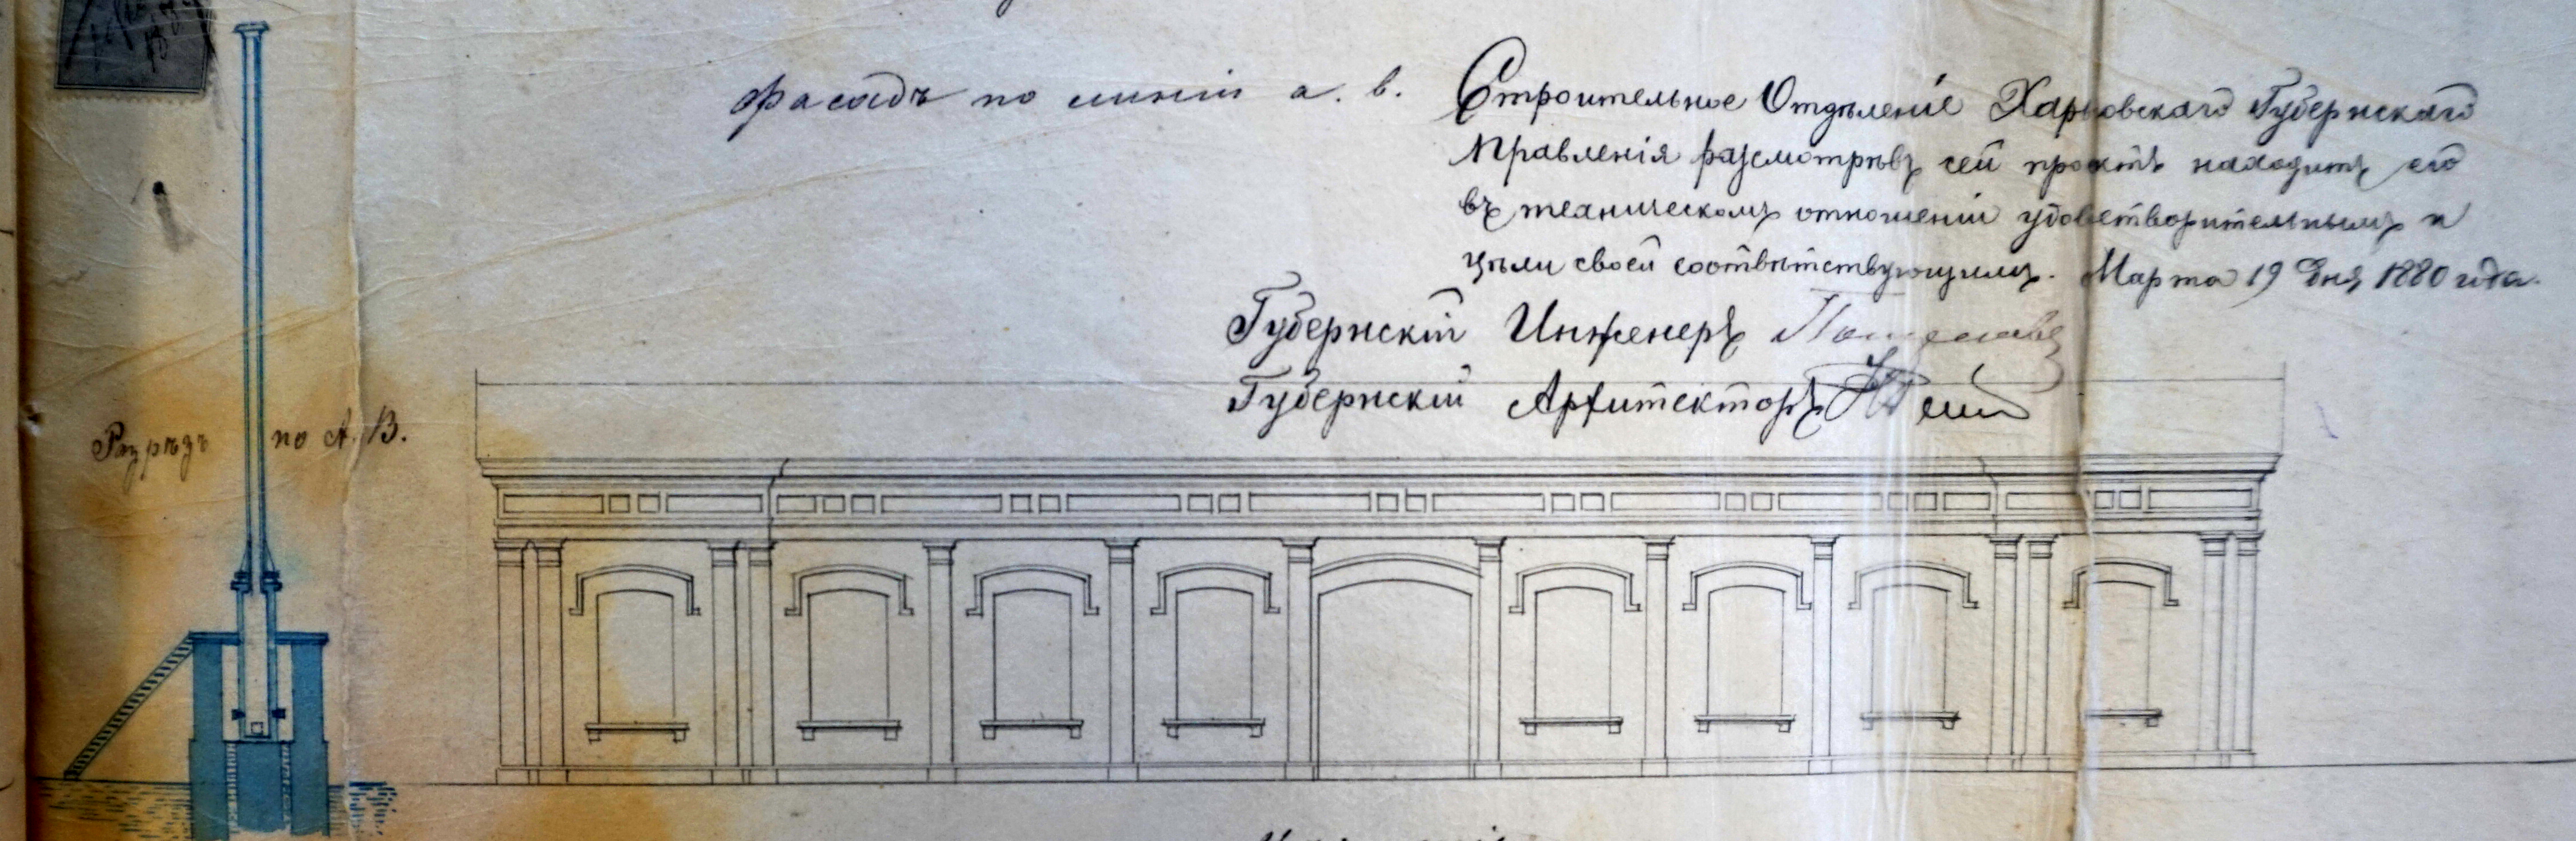 Фасадъ по линіи а. в.
Строительное Отдѣленіе Харьковскаго Губернскаго
Правленія разсмотрѣвъ сей проэктъ находитъ его
въ техническомъ отношеніи удовлетворительнымъ и
цѣли своей соотвѣтствующимъ. Марта 19 дня 1880 года.
Губернскій Инженеръ
Губернскій Архитекторъ
Разрѣзъ по А. В.